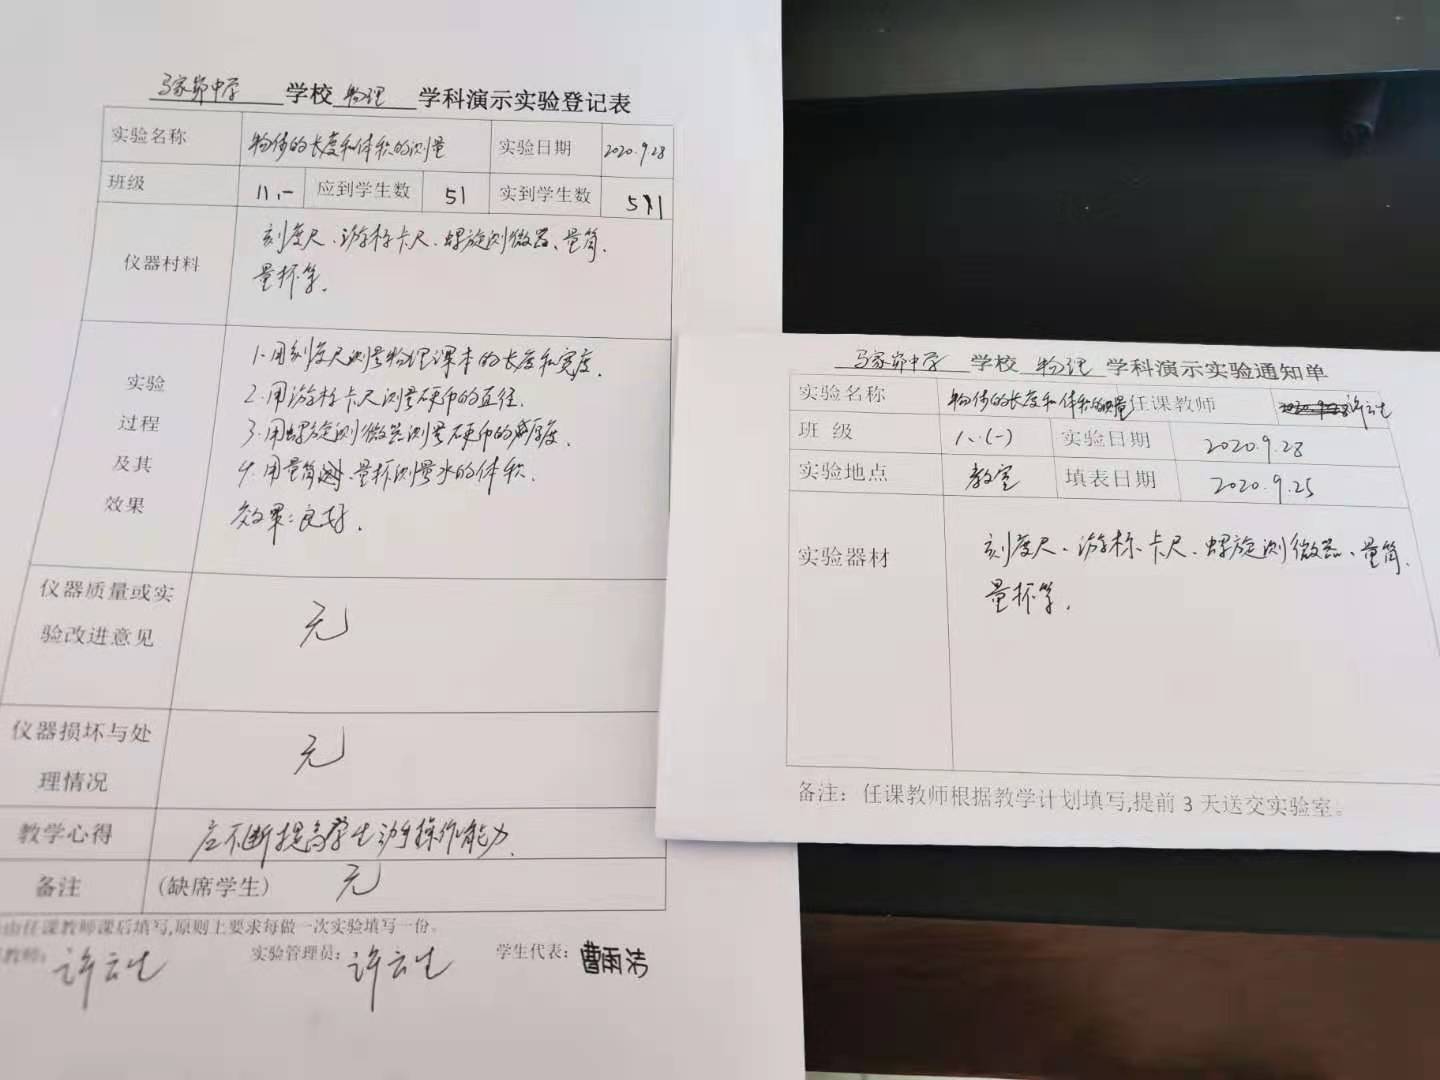 马家峁中学 学校 物理 学科演示实验登记表
实验名称 物体的长度和体积的测量 实验日期 2020.9.28
班级 八.一 应到学生数 51 实到学生数 51
仪器材料 刻度尺、游标卡尺、螺旋测微器、量筒、
量杯等。
实验
过程
及其
效果
1.用刻度尺测量物理课本的长度和宽度.
2.用游标卡尺测量硬币的直径.
3.用螺旋测微器测量硬币的厚度.
4.用量筒、量杯测量水的体积.
效果:良好.
仪器质量或实
验改进意见
无
仪器损坏与处
理情况
无
教学心得 应不断提高学生动手操作能力.
备注 (缺席学生) 无
由任课教师课后填写,原则上要求每做一次实验填写一份。
教师: 许云生 实验管理员: 许云生 学生代表: 曹雨洁
马家峁中学 学校 物理 学科演示实验通知单
实验名称 物体的长度和体积的测量 任课教师 许云生
班 级 八.(一) 实验日期 2020.9.28
实验地点 教室 填表日期 2020.9.25
实验器材 刻度尺、游标卡尺、螺旋测微器、量筒、
量杯等.
备注：任课教师根据教学计划填写,提前 3 天送交实验室。